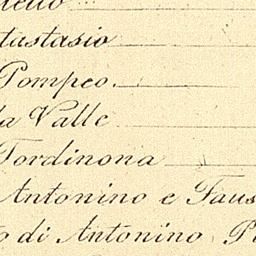 tastasio
Pompeo.
la Valle
Tordinona
Antonino e Faus
o di Antonino, Pi